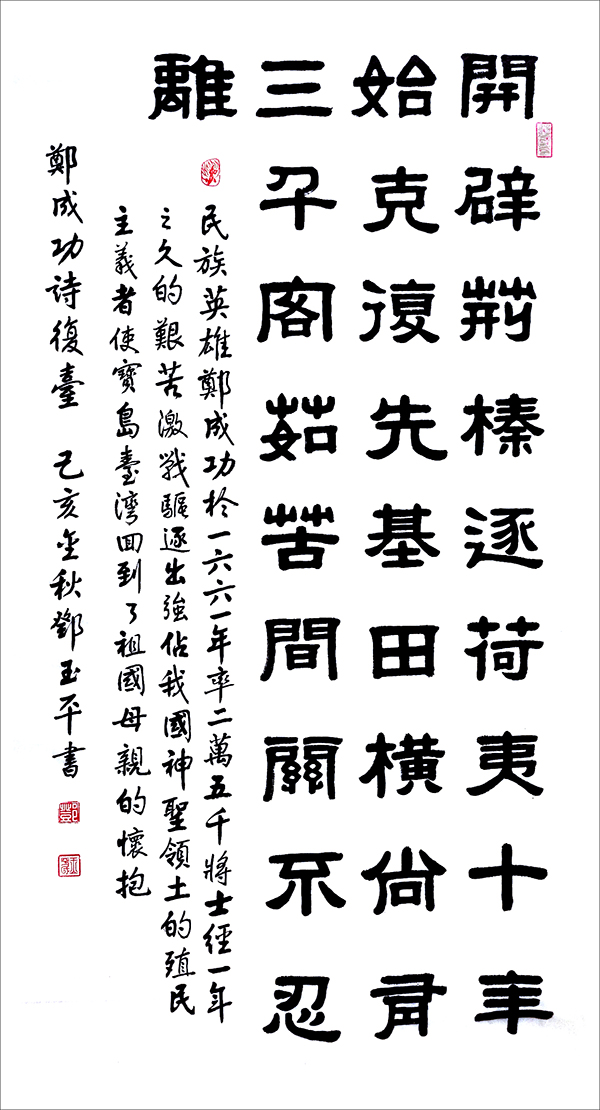 開辟荊榛逐荷夷十年
始克復先基田橫尚有
三千客茹苦間關不忍
離
民族英雄鄭成功於一六六一年率二萬五千將士經一年
之久的艱苦激戰驅逐出強佔我國神聖領土的殖民
主義者使寶島臺灣回到了祖國母親的懷抱
鄭成功詩復臺 己亥金秋鄧玉平書